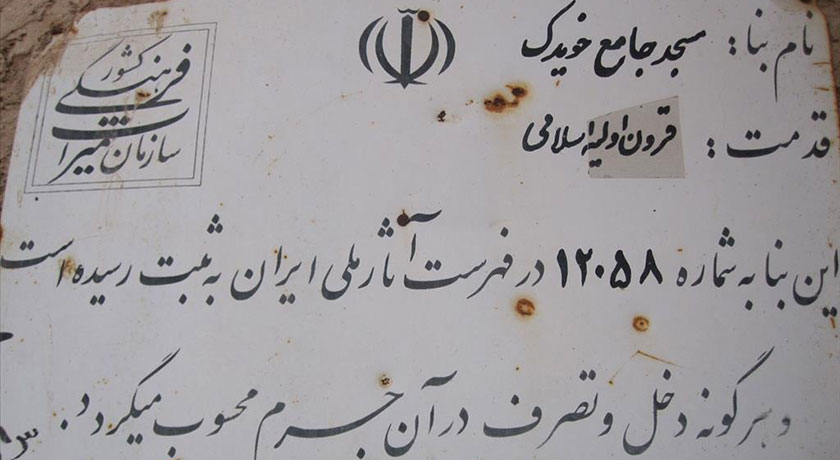 نام بنا: مسجد جامع خویدک
قدمت: قرون اولیه اسلامی
سازمان میراث فرهنگی کشور
این بنا به شماره ۱۲۰۵۸ در فهرست آثار ملی ایران به ثبت رسیده است
و هر گونه دخل و تصرف در آن جرم محسوب میگردد.